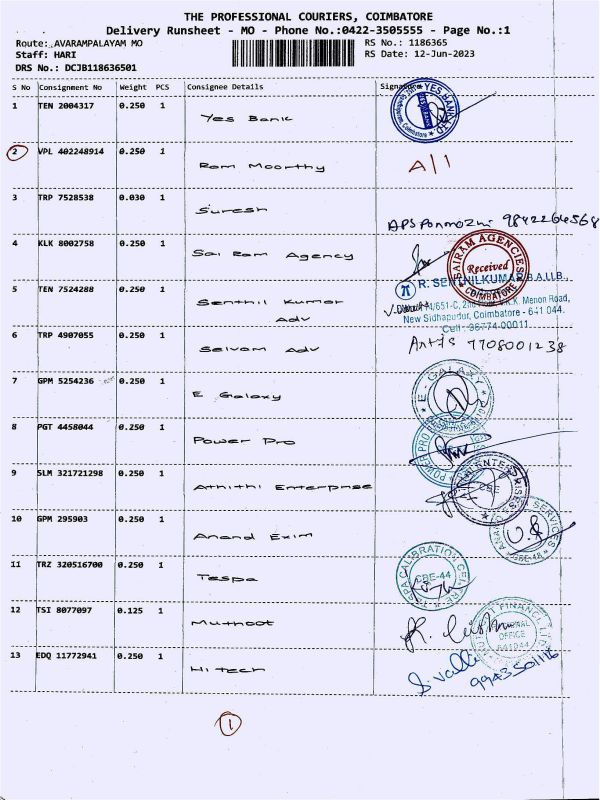 THE PROFESSIONAL COURIERS, COIMBATORE
Delivery Runsheet - MO - Phone No.:0422-3505555 - Page No.:1
Route: AVARAMPALAYAM MO RS No.: 1186365
Staff: HARI RS Date: 12-Jun-2023
DRS No.: DCJB118636501
S No Consignment No Weight PCS Consignee Details Signature
1 TEN 2004317 0.250 1 Yes Bank YES BANK
2 VPL 402248914 0.250 1 Ram Moorthy A/1
3 TRP 7528538 0.030 1 Suresh APS Ponmozhi 9842264568
4 KLK 8002758 0.250 1 Sai Ram Agency SAIRAM AGENCIES Received COIMBATORE
5 TEN 7524288 0.250 1 Senthil Kumar Adv R. SENTHILKUMAR B.A.LL.B.
Menon Road,
New Sidhapudur, Coimbatore - 641 044.
6 TRP 4907055 0.250 1 Selvam Adv 7708001238
7 GPM 5254236 0.250 1 E Galaxy E - GALAXY
8 PGT 4458044 0.250 1 Power Pro POWER PRO
9 SLM 321721298 0.250 1 Athithi Enterprise CBE
10 GPM 295903 0.250 1 Anand Exim SERVICES
11 TRZ 320516700 0.250 1 Taspa CALIBRATION CBE-44
12 TSI 8077097 0.125 1 Muthoot OFFICE 641044
13 EDQ 11772941 0.250 1 Hi tech S. Valli
1